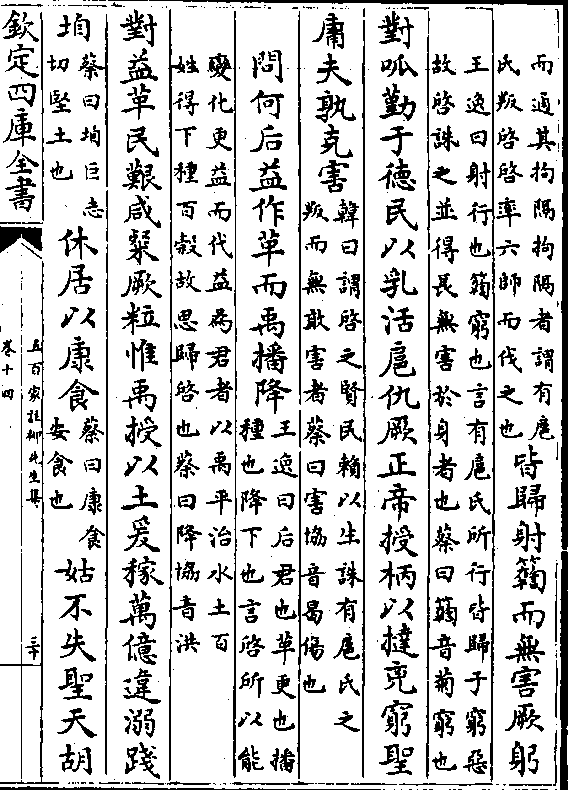 而通其拘隔拘隔者謂有扈
氏叛啓啓率六師而伐之也
皆歸射䕮而無害厥躬
王逸曰射行也䕮窮也言有扈氏所行皆歸于窮惡
故啓誅之並得長無害於身者也蔡曰䕮音菊窮也
對呱勤于德民以乳活扈仇厥正帝授柄以撻兇窮聖
庸夫孰克害
韓曰謂啓之賢民賴以生誅有扈氏之
叛而無敢害者蔡曰害協音曷傷也
問何后益作革而禹播降
王逸曰后君也革更也播
種也降下也言啓所以能
變化更益而代益爲君者以禹平治水土百
姓得下種百穀故思歸啓也蔡曰降協音洪
對益革民艱咸粲厥粒惟禹授以土爰稼萬億違溺踐
垍
蔡曰垍巨志
切堅土也
休居以康食
蔡曰康食
安食也
姑不失聖天胡
欽定四庫全書
五百家註柳先生集
卷十四
三十